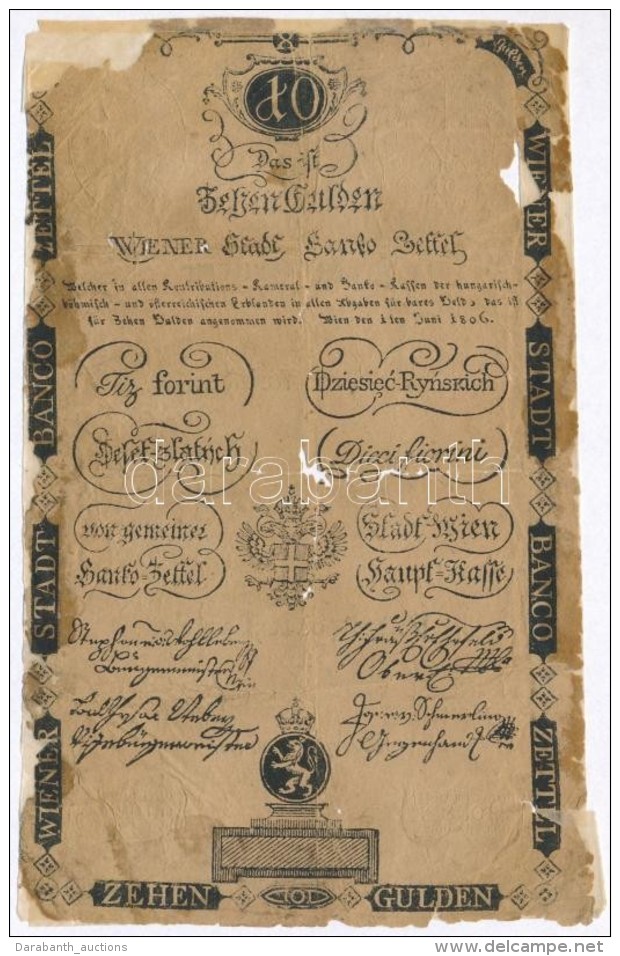 Gulden
10
Das ist
Zehen Gulden
WIENER Stadt Banko Zettel
Welcher in allen Kontributions-Kameral-und Banko-Kassen der hungarisch-
böhmisch-und österreichischen Erblanden in allen Abgaben für bares Geld, das ist
für Zehen Gulden angenommen wird. Wien den 1ten Juni 1806.
Tiz forint
Dzięsięć-Ryńskich
Deset-zlatych
Dieci fiorini
darabanth
von gemeiner
Stadt-Wien
Banko-Zettel
Haupt-Kasse
WIENER STADT BANCO ZETTEL
WIENER STADT BANCO ZETTEL
ZEHEN
101
GULDEN
Darabanth_auctions
delcampe.net